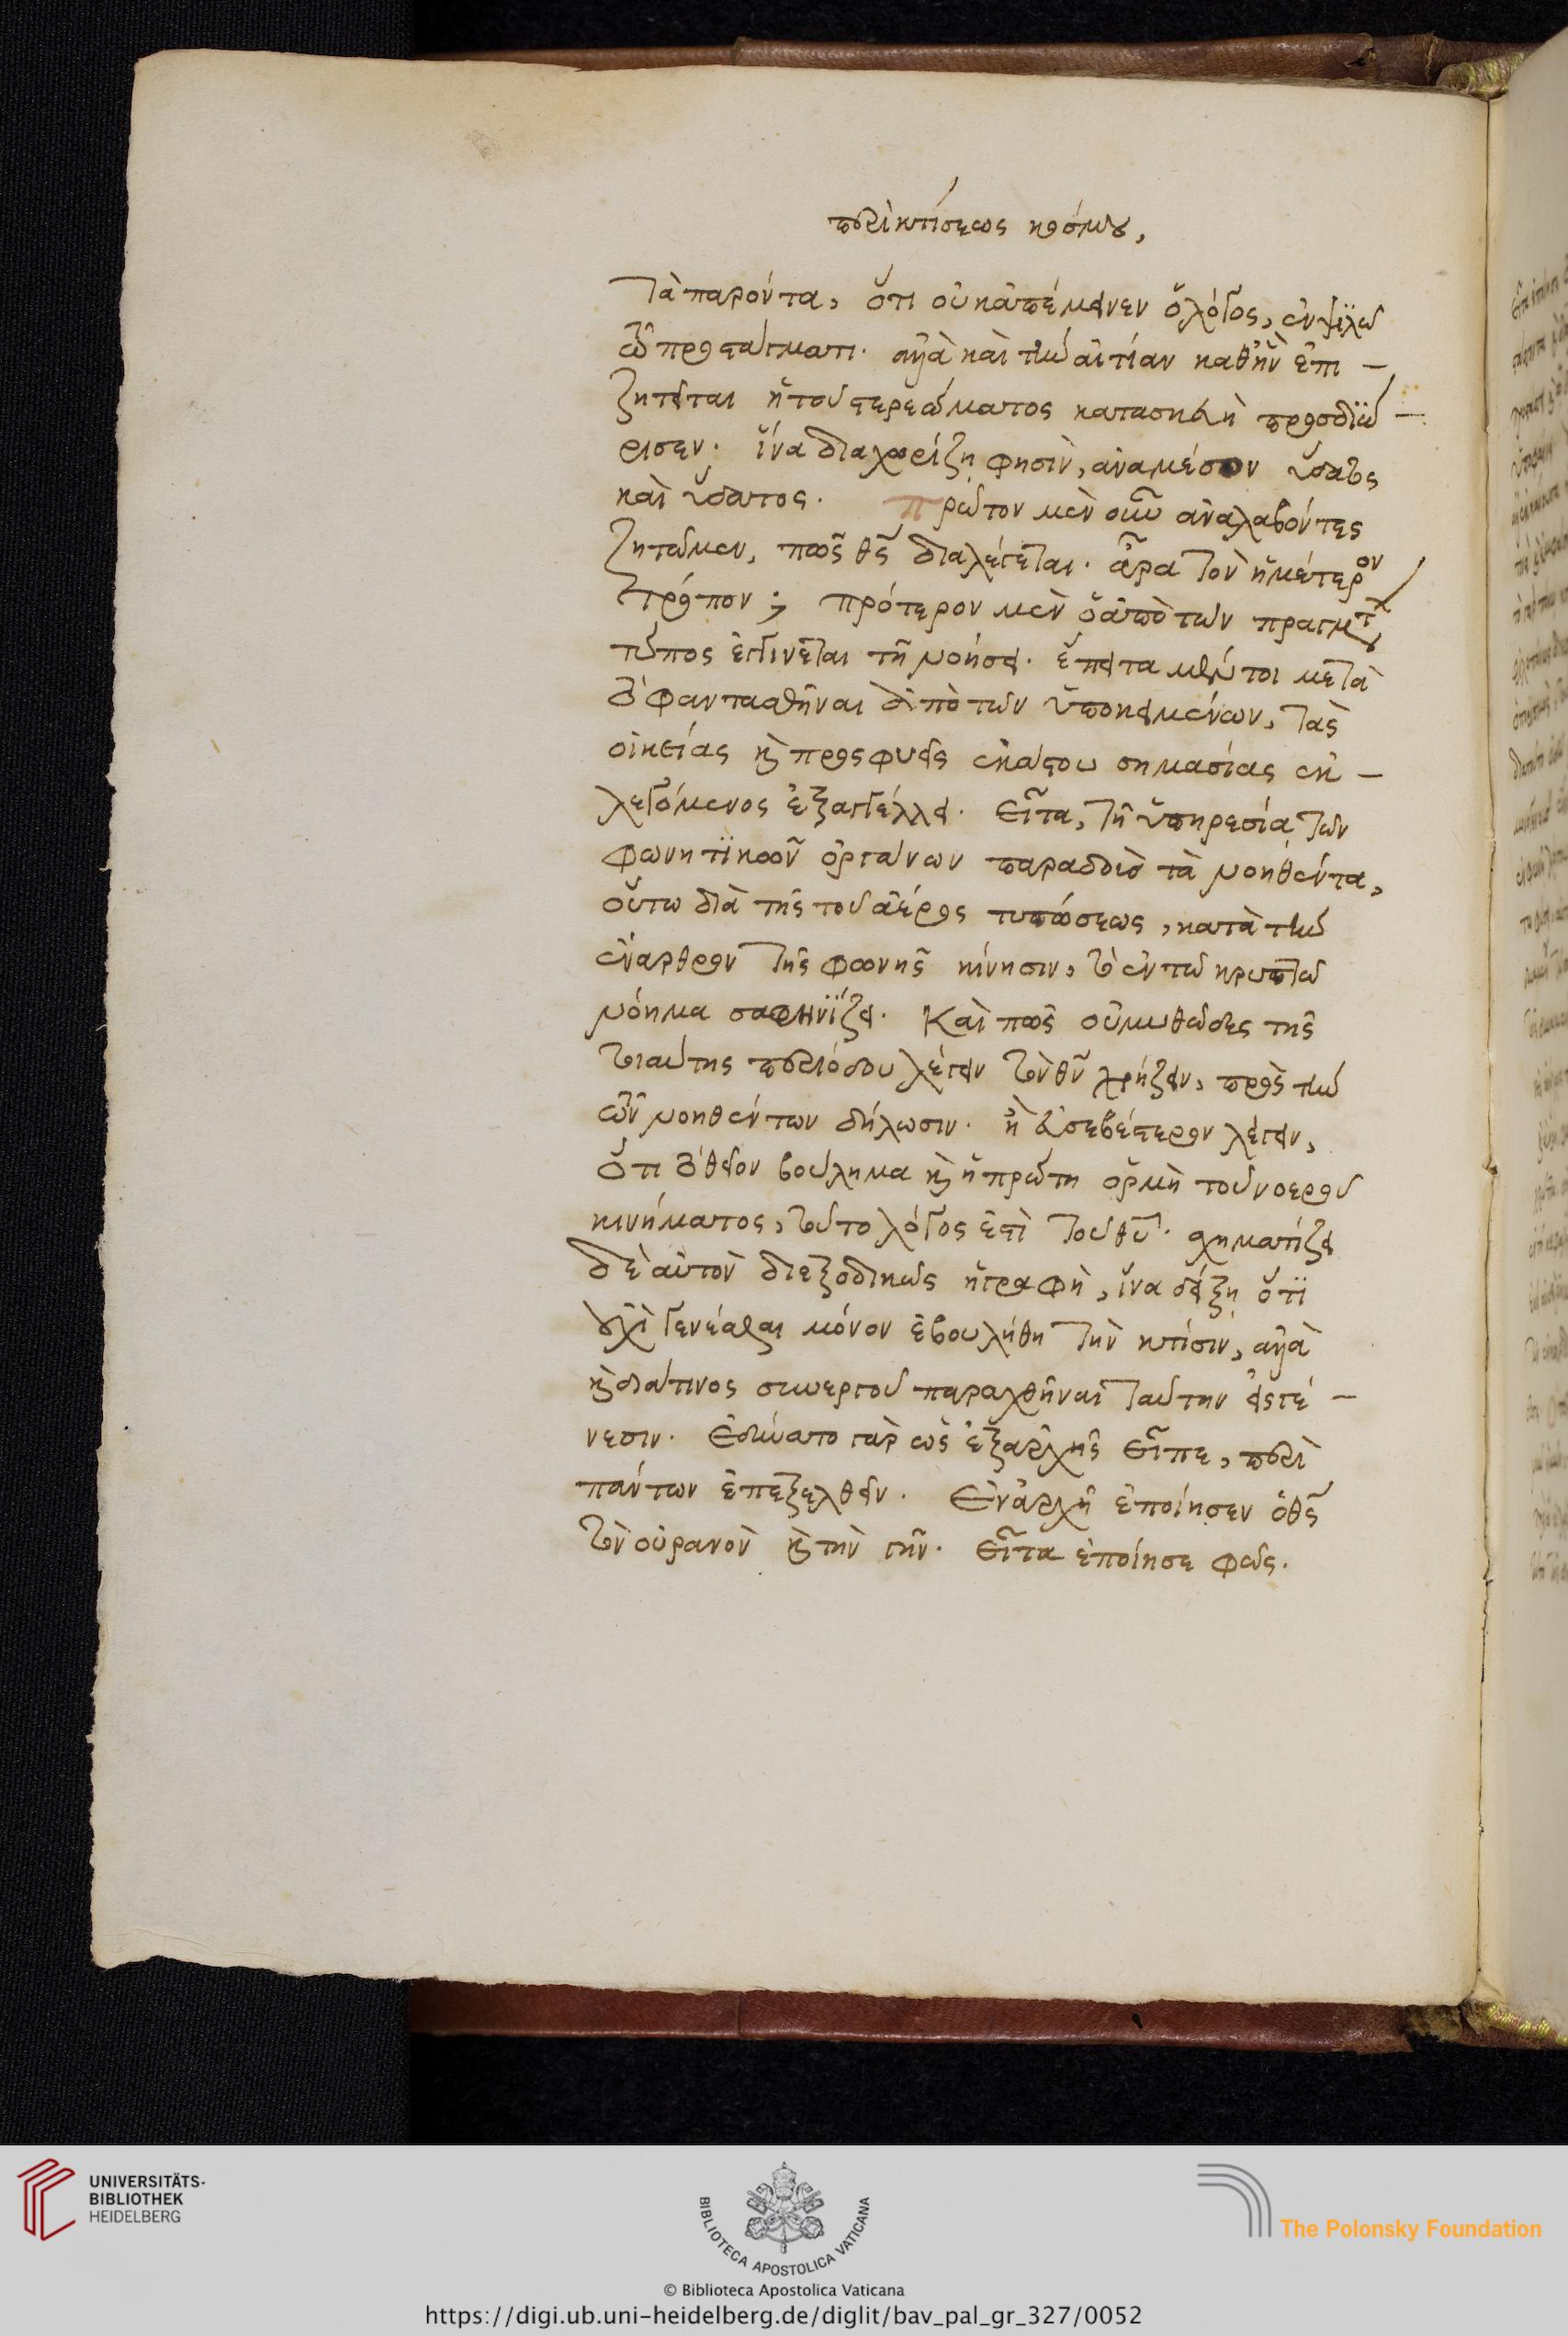 περὶ κτίσεως κόσμου,
τὰ παρόντα, ὅτι οὐ κατέμεινεν ὁ λόγος, ἐν ψιλῶ
τῶ προστάγματι· ἀλλὰ καὶ τὴν αἰτίαν καθ' ἣν ἐπι –
ζητεῖται ἡ τοῦ στερεώματος κατασκευὴ προσδιώ –
ρισεν· ἵνα διαχωρίζη φησὶν, ἀναμέσον ὕδατος
καὶ ὕδατος. Πρῶτον μὲν οὖν ἀναλαβόντες
ζητῶμεν, πῶς θς διαλέγεται· ἆρα τὸν ἡμέτερον
τρόπον; πρότερον μὲν ὁ ἀπὸ τῶν πραγμτ
τύπος ἐγγίνεται τῆ νοήσει· ἔπειτα μέντοι μετὰ
τὸ φαντασθῆναι ἀπὸ τῶν ὑποκειμένων, τὰς
οἰκείας καὶ προσφυεῖς ἑκάστου σημασίας ἐκ –
λεγόμενος ἐξαγγέλλει· εἶτα, τῆ ὑπηρεσία τῶν
φωνητικῶν ὀργάνων παραδοὺς τὰ νοηθέντα,
οὕτω διὰ τῆς τοῦ ἀέρος τυπώσεως, κατὰ τὴν
ἔναρθρον τῆς φωνῆς κίνησιν, τὸ ἐν τῶ κρυπτῶ
νόημα σαφηνίζει· Καὶ πῶς οὐ μυθῶδες τῆς
τοιαύτης περιόδου λέγειν τὸν θν χρήζειν, πρὸς τὴν
τῶν νοηθέντων δήλωσιν· ἢ εὐσεβέστερον λέγειν,
ὅτι τὸ θεῖον βούλημα καὶ ἡ πρώτη ὁρμὴ τοῦ νοεροῦ
κινήματος, τοῦτο λόγος ἐστὶ τοῦ θυ· σχηματίζει
δὲ αὐτὸν διεξοδικῶς ἡ γραφὴ, ἵνα δείξη ὅτι
οὐχὶ γενέσθαι μόνον ἐβουλήθη τὴν κτίσιν, ἀλλὰ
καὶ διά τινος συνεργοῦ παραχθῆναι ταύτην εἰς γέ –
νεσιν· Ἐδύνατο γὰρ ὡς ἐξαρχῆς εἶπε, περὶ
πάντων ἐπεξελθεῖν· Ἐν ἀρχῆ ἐποίησεν ὁ θς
τὸν οὐρανὸν καὶ τὴν γῆν· εἶτα ἐποίησε φῶς·
UNIVERSITÄTS-
BIBLIOTHEK
HEIDELBERG
BIBLIOTECA APOSTOLICA VATICANA
The Polonsky Foundation
© Biblioteca Apostolica Vaticana
https://digi.ub.uni-heidelberg.de/diglit/bav_pal_gr_327/0052